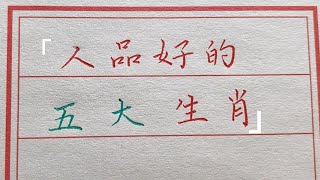 「人品好的
五大生肖」